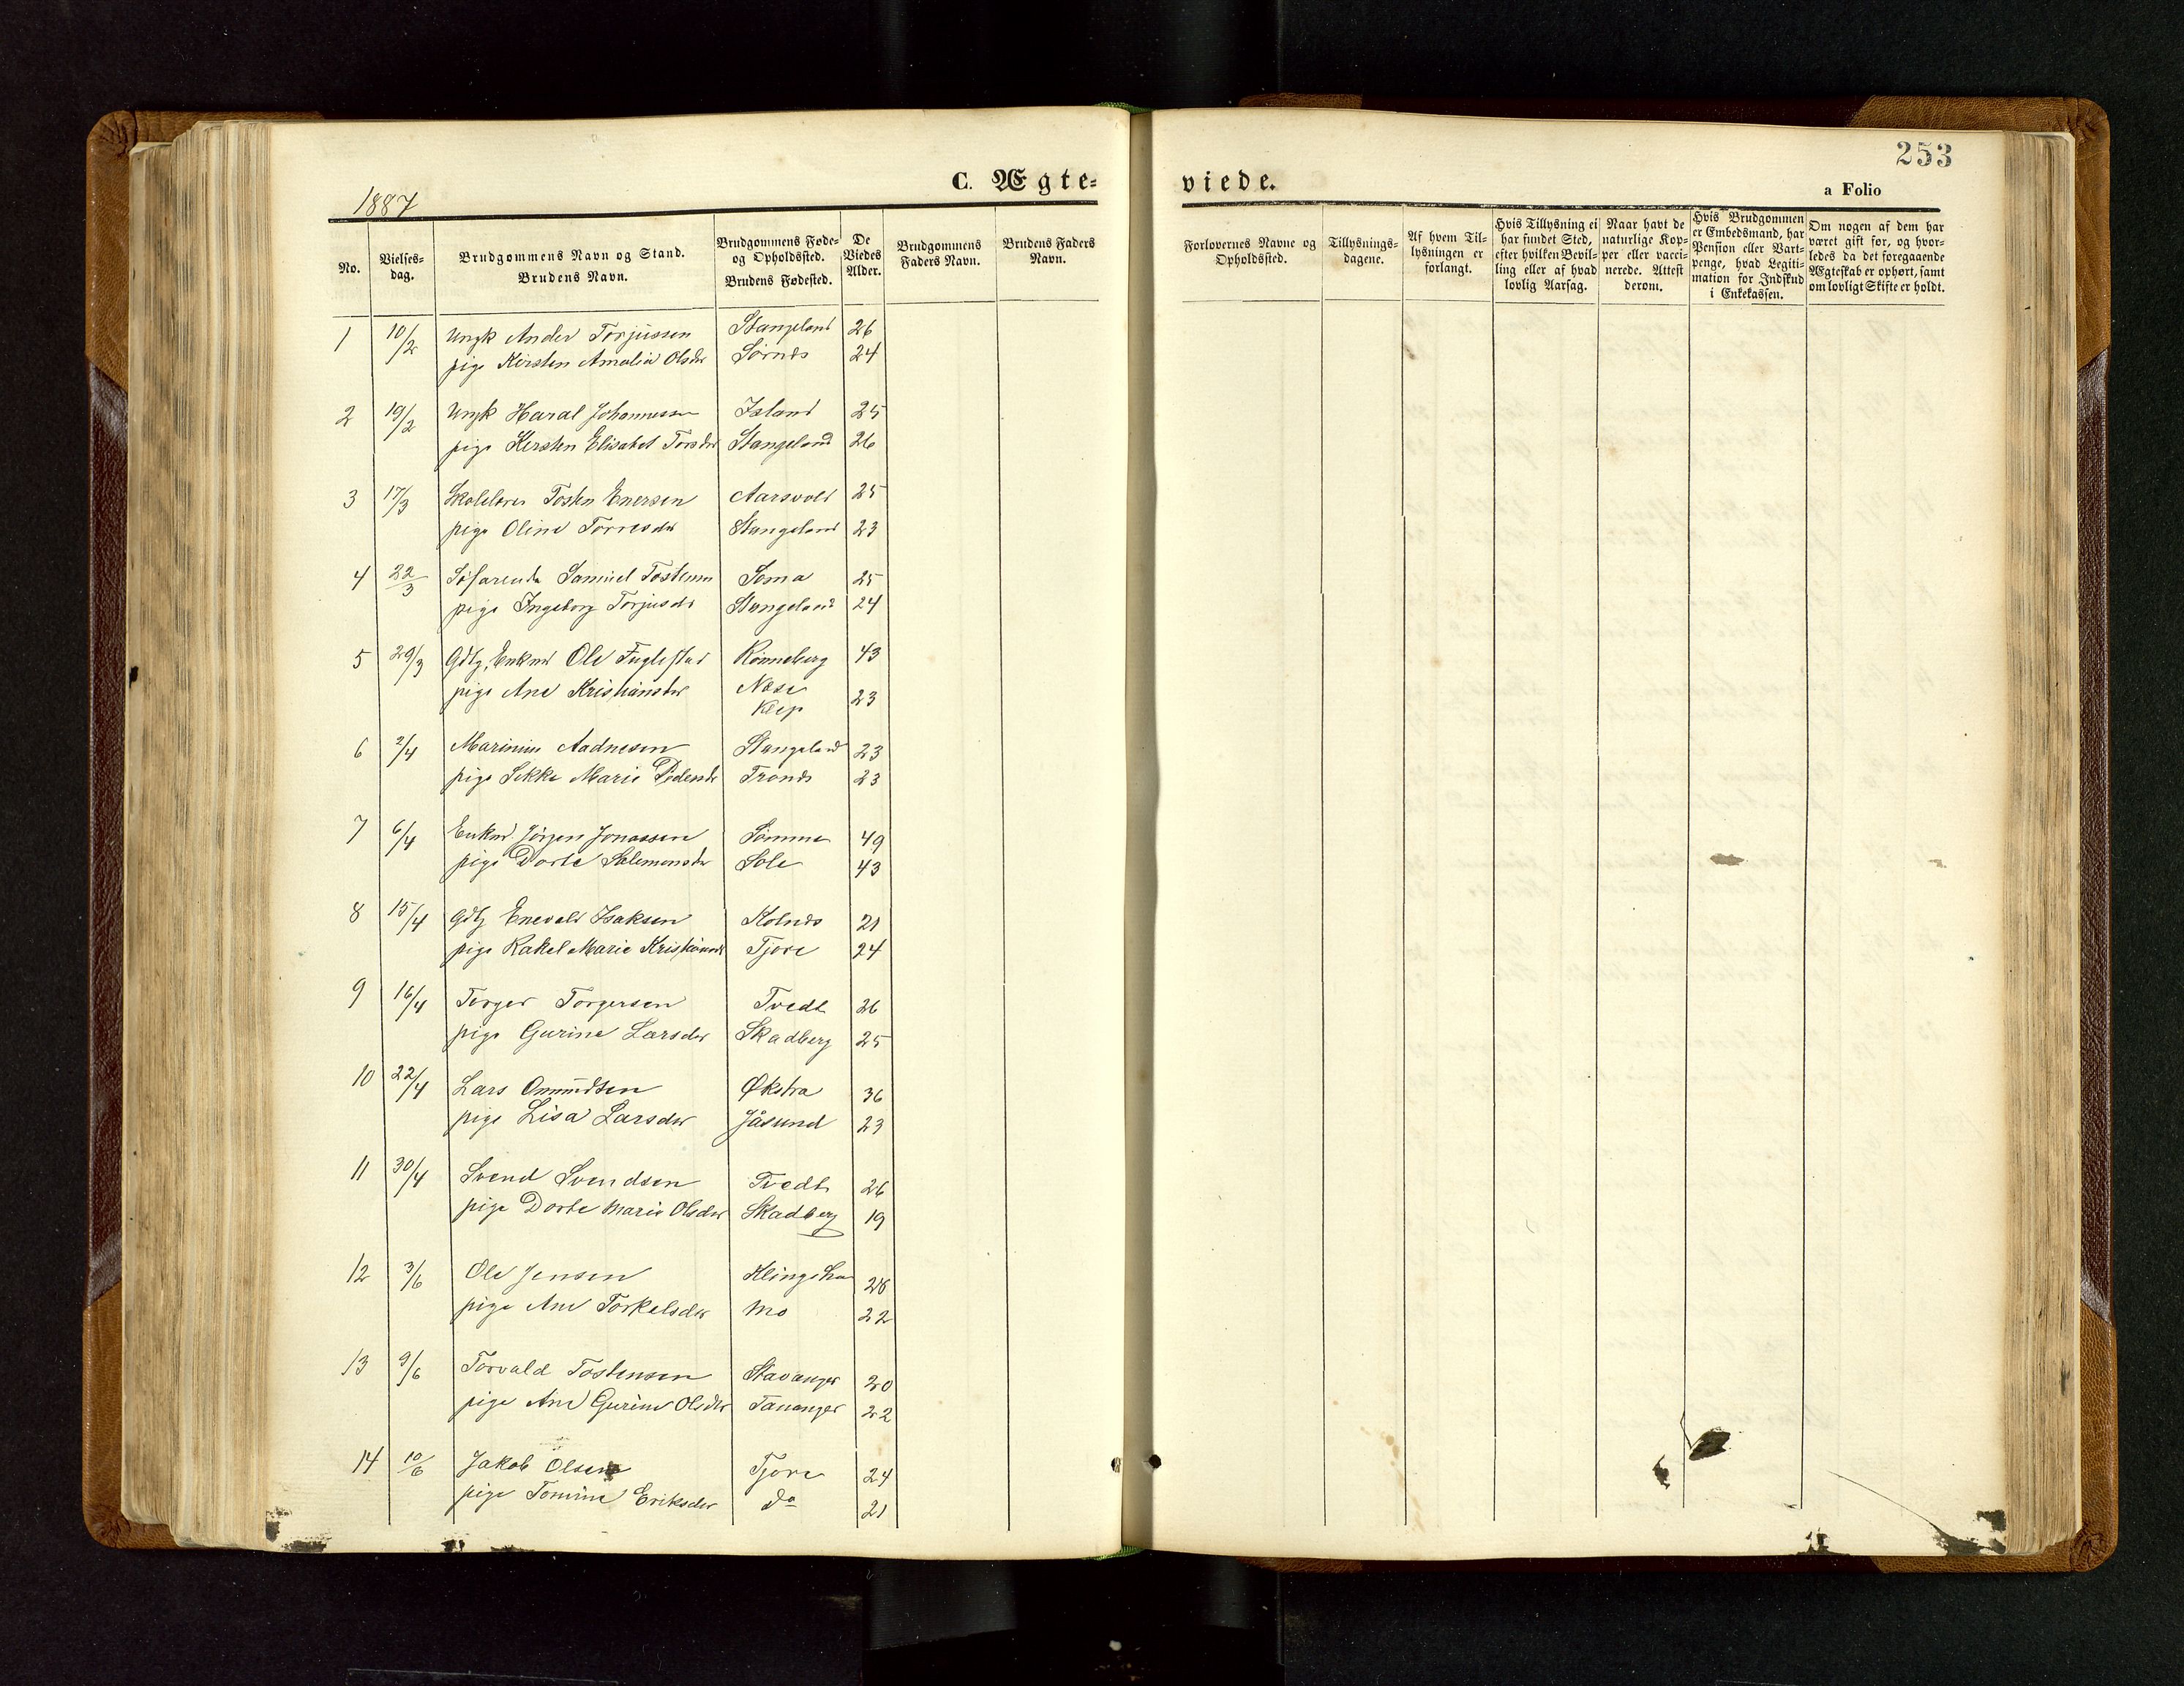 253
C. Ægte-
viede.
a Folio
1887
No.
Vielses-
dag.
Brudgommens Navn og Stand.
Brudens Navn.
Brudgommens Føde-
og Opholdssted.
Brudens Fødested.
De
Viedes
Alder.
Brudgommens
Faders Navn.
Brudens Faders
Navn.
Forlovernes Navne og
Opholdssted.
Tillysnings-
dagene.
Af hvem Til-
lysningen er
forlangt.
Hvis Tillysning ei
har fundet Sted,
efter hvilken Bevil-
ling eller af hvad
lovlig Aarsag.
Naar havt de
naturlige Kop-
per eller vacci-
nerede. Attest
derom.
Hvis Brudgommen
er Embedsmand, har
Pension eller Vart-
penge, hvad Legiti-
mation for Indskud
i Enkekassen.
Om nogen af dem har
været gift før, og hvor-
ledes da det foregaaende
Ægteskab er ophørt, samt
om lovligt Skifte er holdt.
1 10/2 Ungk Ander Torjussen Stangeland 26
pige Kirsten Amalia Olsdr Sørnes 24
2 19/2 Ungk Haral Johannessen Island 25
pige Kirsten Elisabet Torsdr Stangeland 26
3 17/3 Skolelærer Tosten Enersen Aarsvold 25
pige Oline Torresdr Stangeland 23
4 22/3 Søfarende Samuel Tostensen Soma 25
pige Ingeborg Torjusdr Stangeland 24
5 29/3 Gdbg, Enkmd Ole Fuglestad Rønneberg 43
pige Ane Kristiansdr Næse 23
Klep
6 2/4 Marinius Aadnesen Stangeland 23
pige Sikke Marie Pedersdr Tronds 23
7 6/4 Enkmd. Jörgen Jonassen Sömme 49
pige Dorte Salemonsdr Sole 43
8 15/4 Gdbg Enevald Isaksen Kolnes 21
pige Rakel Marie Kristiansdr Tjore 24
9 16/4 Torger Torgersen Tvedt 26
pige Gurine Larsdr Skadberg 25
10 22/4 Lars Ommundsen Økstra 36
pige Lisa Larsdr Jåsund 23
11 30/4 Svend Svendsen Tvedt 26
pige Dorte Marie Olsdr Skadberg 19
12 3/6 Ole Jensen 28
pige Ane Torkelsdr Mo 22
13 9/6 Torvald Tostensen Stavanger 20
pige Ane Gurine Olsdr Tananger 22
14 10/6 Jakob Olsen Tjore 24
pige Tomine Eriksdr do 21